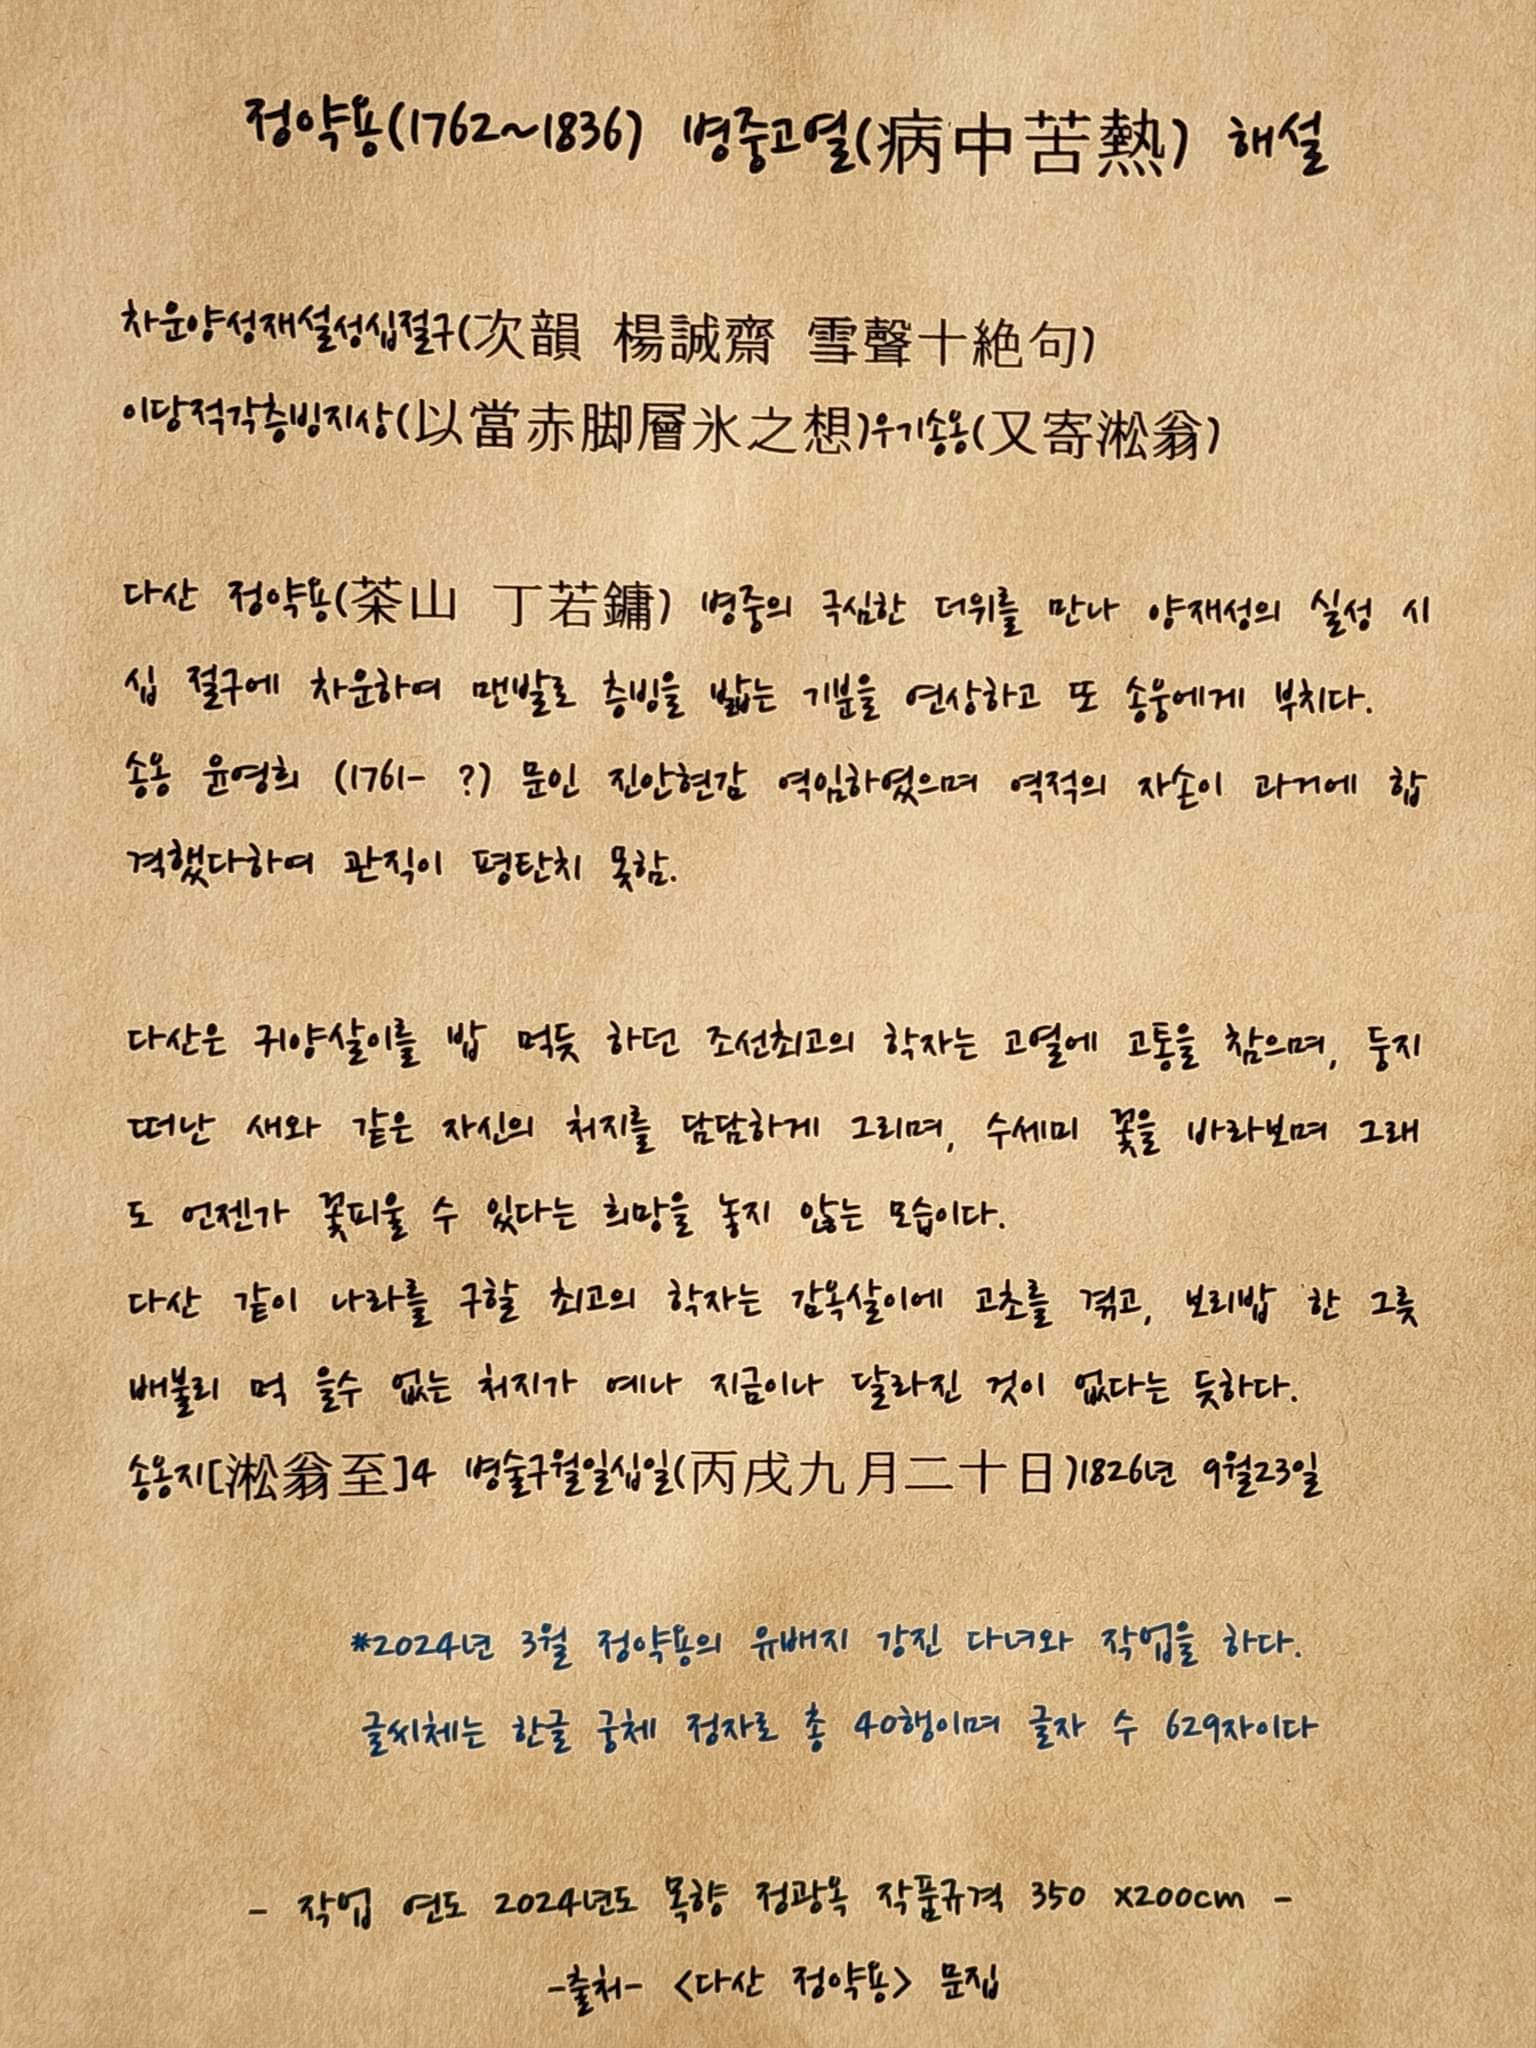 정약용(1762~1836) 병중고열(病中苦熱) 해설
차운양성재설성십절구(次韻 楊誠齋 雪聲十絶句)
이당적각층빙지상(以當赤脚層氷之想)우기송옹(又寄淞翁)
다산 정약용(茶山 丁若鏞) 병중의 극심한 더위를 만나 양재성의 실성 시
십 절구에 차운하여 맨발로 층빙을 밟는 기분을 연상하고 또 송웅에게 부치다.
송옹 윤영희 (1761- ?) 문인 진안현감 역임하였으며 역적의 자손이 과거에 합
격했다하여 관직이 평탄치 못함.
다산은 귀양살이를 밥 먹듯 하던 조선최고의 학자는 고열에 고통을 참으며, 둥지
떠난 새와 같은 자신의 처지를 담담하게 그리며, 수세미 꽃을 바라보며 그래
도 언젠가 꽃피울 수 있다는 희망을 놓지 않는 모습이다.
다산 같이 나라를 구할 최고의 학자는 감옥살이에 고초를 겪고, 보리밥 한 그릇
배불리 먹 을수 없는 처지가 예나 지금이나 달라진 것이 없다는 듯하다.
송옹지[淞翁至]4 병술구월일십일(丙戌九月二十日)1826년 9월23일
*2024년 3월 정약용의 유배지 강진 다녀와 작업을 하다.
글씨체는 한글 궁체 정자로 총 40행이며 글자 수 629자이다
- 작업 연도 2024년도 목향 정광옥 작품규격 350 x200cm -
-출처- <다산 정약용> 문집